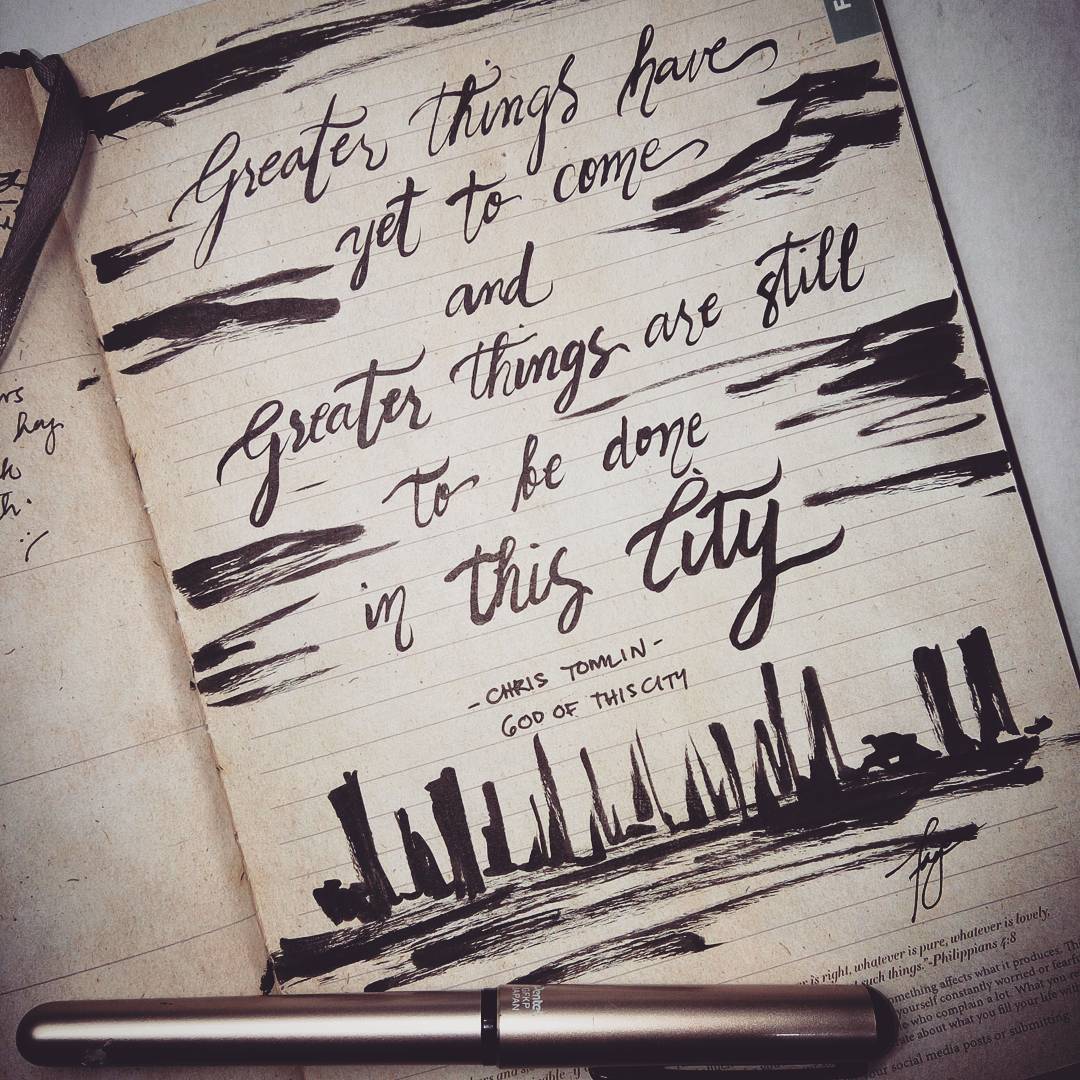 Greater things have
yet to come
and
Greater things are still
to be done
in this City
- CHRIS TOMLIN -
GOD OF THIS CITY
is right, whatever is pure, whatever is lovely,
such things."-Philippians 4:8
affects what it produces.
yourself constantly worried or
who complain a lot. What you
about what you fill your life with
social media posts or submitting
hay
JAPAN